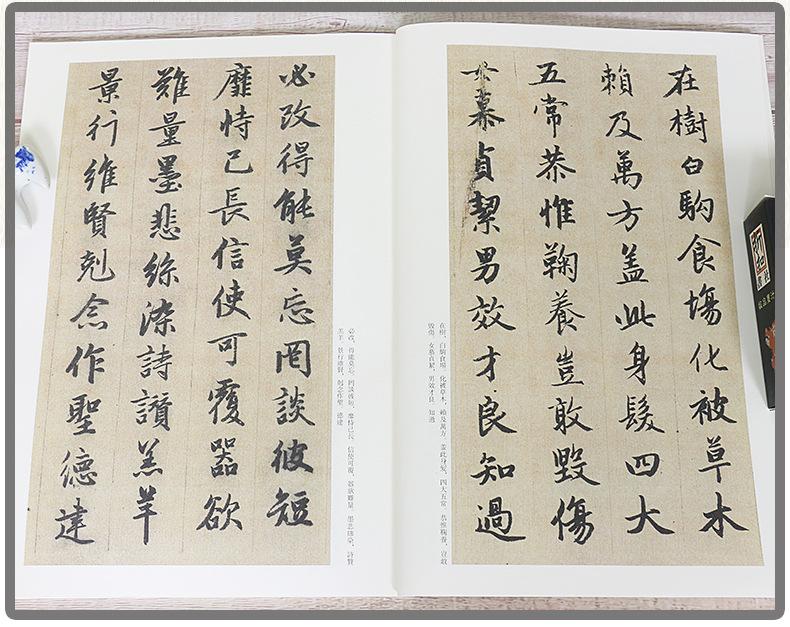 在樹白駒食場化被草木
賴及萬方盖此身髮四大
五常恭惟鞠養豈敢毀傷
女慕貞絜男效才良知過
在樹，白駒食場。化被草木，賴及萬方。蓋此身髮，四大五常。恭惟鞠養，豈敢
毀傷。女慕貞絜，男效才良。知過
必改得能莫忘罔談彼短
靡恃己長信使可覆器欲
難量墨悲絲染詩讚羔羊
景行維賢剋念作聖德建
必改，得能莫忘。罔談彼短，靡恃己長。信使可覆，器欲難量。墨悲絲染，詩贊
羔羊。景行維賢，剋念作聖。德建